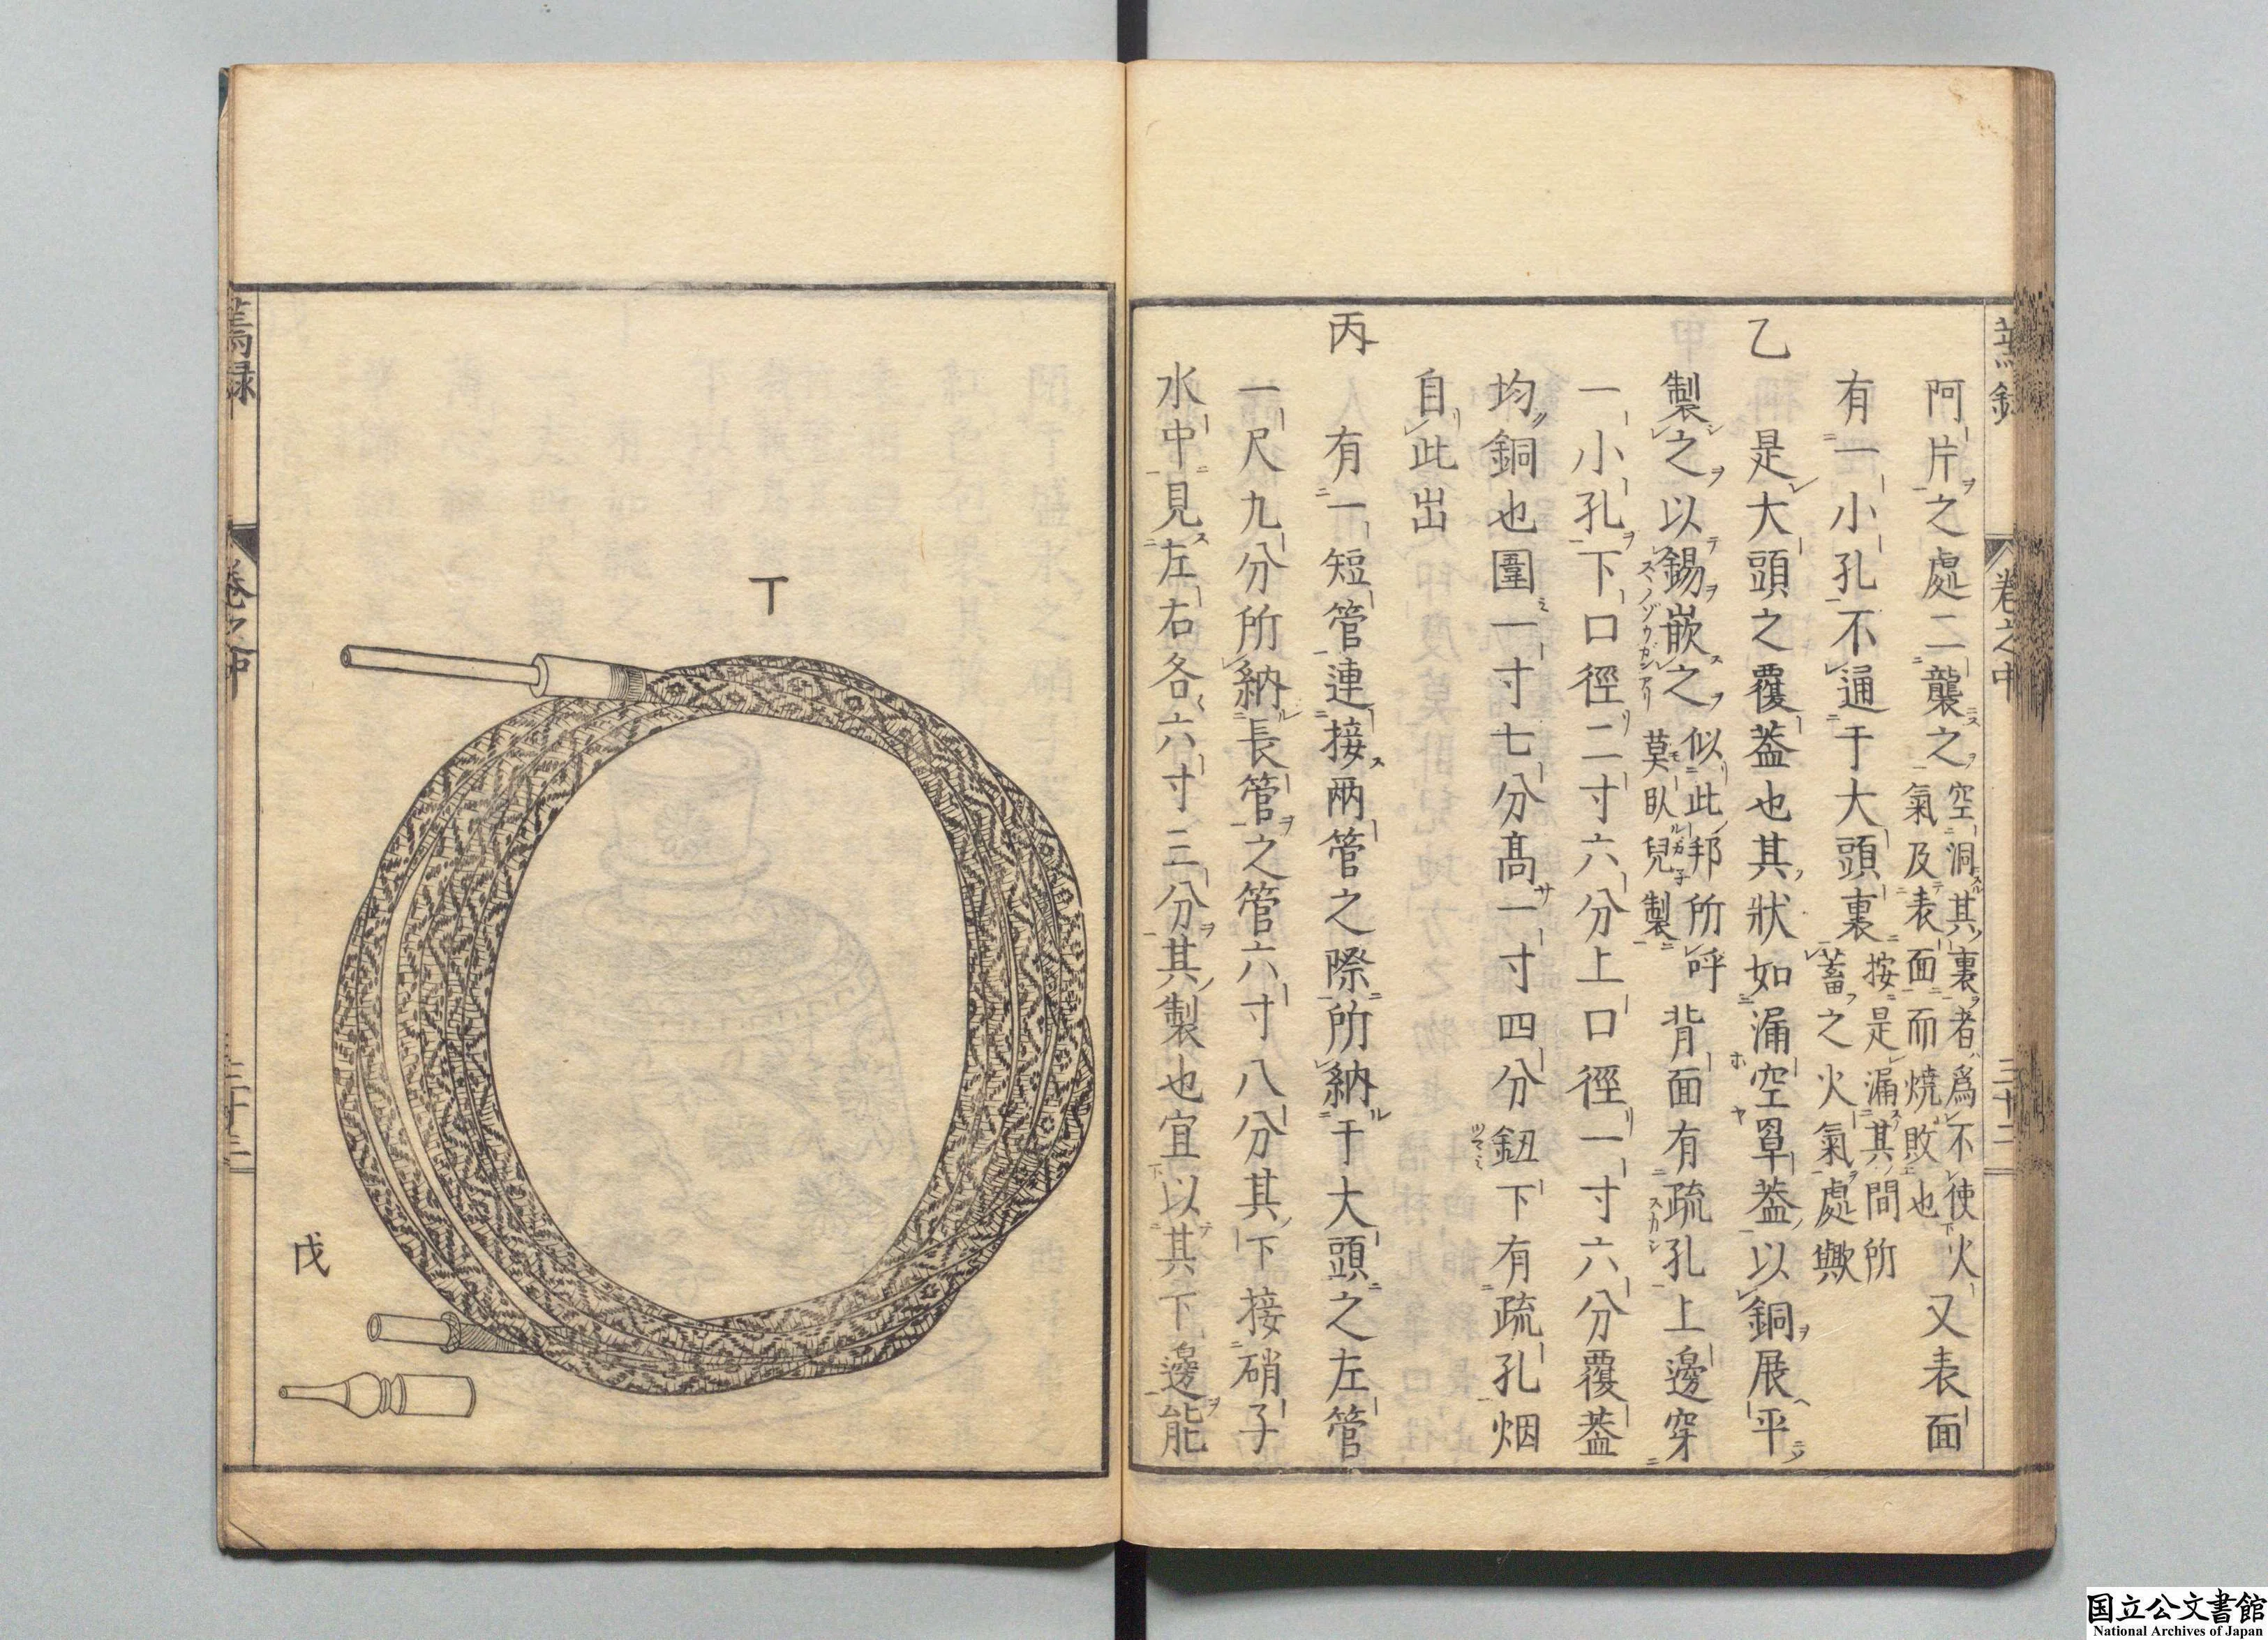 阿片之處二襲之空洞其裏者爲不使火
氣及表面而燒敗也又表面
有一小孔不通于大頭裏按是漏其間所
蓄之火氣處歟
乙
是大頭之覆蓋也其狀如漏空罩蓋以銅展平
製之以錫嵌之似此邦所呼
莫臥兒製背面有疏孔上邊穿
一小孔下口徑二寸六分上口徑一寸六分覆蓋
均銅也圍一寸七分高一寸四分鈕下有疏孔烟
自此出
丙
有一短管連接兩管之際所納于大頭之左管
一尺九分所納長管之管六寸八分其下接硝子
水中見左右各六寸三分其製也宜以其下邊能
卷之中
三十二
丁
戊
卷之中
国立公文書館
National Archives of Japan